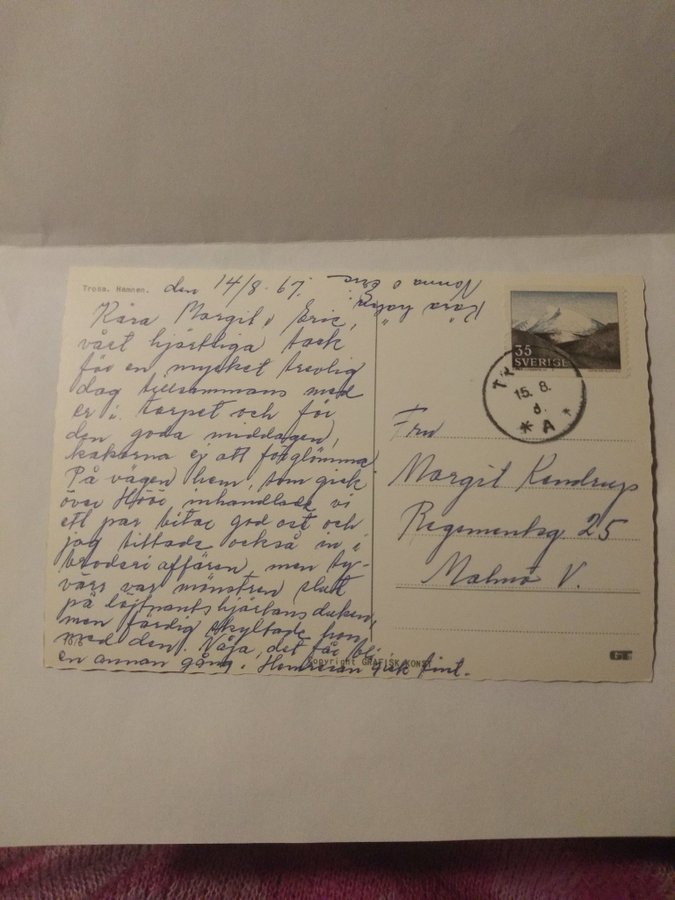 Trosa. Hamnen.
den 14/8. 67.
Kära Margit o Eric,
vårt hjärtliga tack
för en mycket trevlig
dag tillsammans med
er i torpet och för
den goda middagen,
kakorna ej att förglömma
På vägen hem, som gick
över Höör inhandlade vi
ett par bitar god ost och
jag tittade också in i
broderiaffären, men ty-
värr var mönstren slut
på löjtnantshjärtansduken,
men färdig skyltade hon
med den. Nåja, det får bli
en annan gång. Hemresan gick fint.
Kära
Nonna o Eric
35
SVERIGE
15. 8.
* A *
Fru
Margit Rendrup
Regementsg 25
Malmö V.
70/6
Copyright GRAFISK KONST
GK